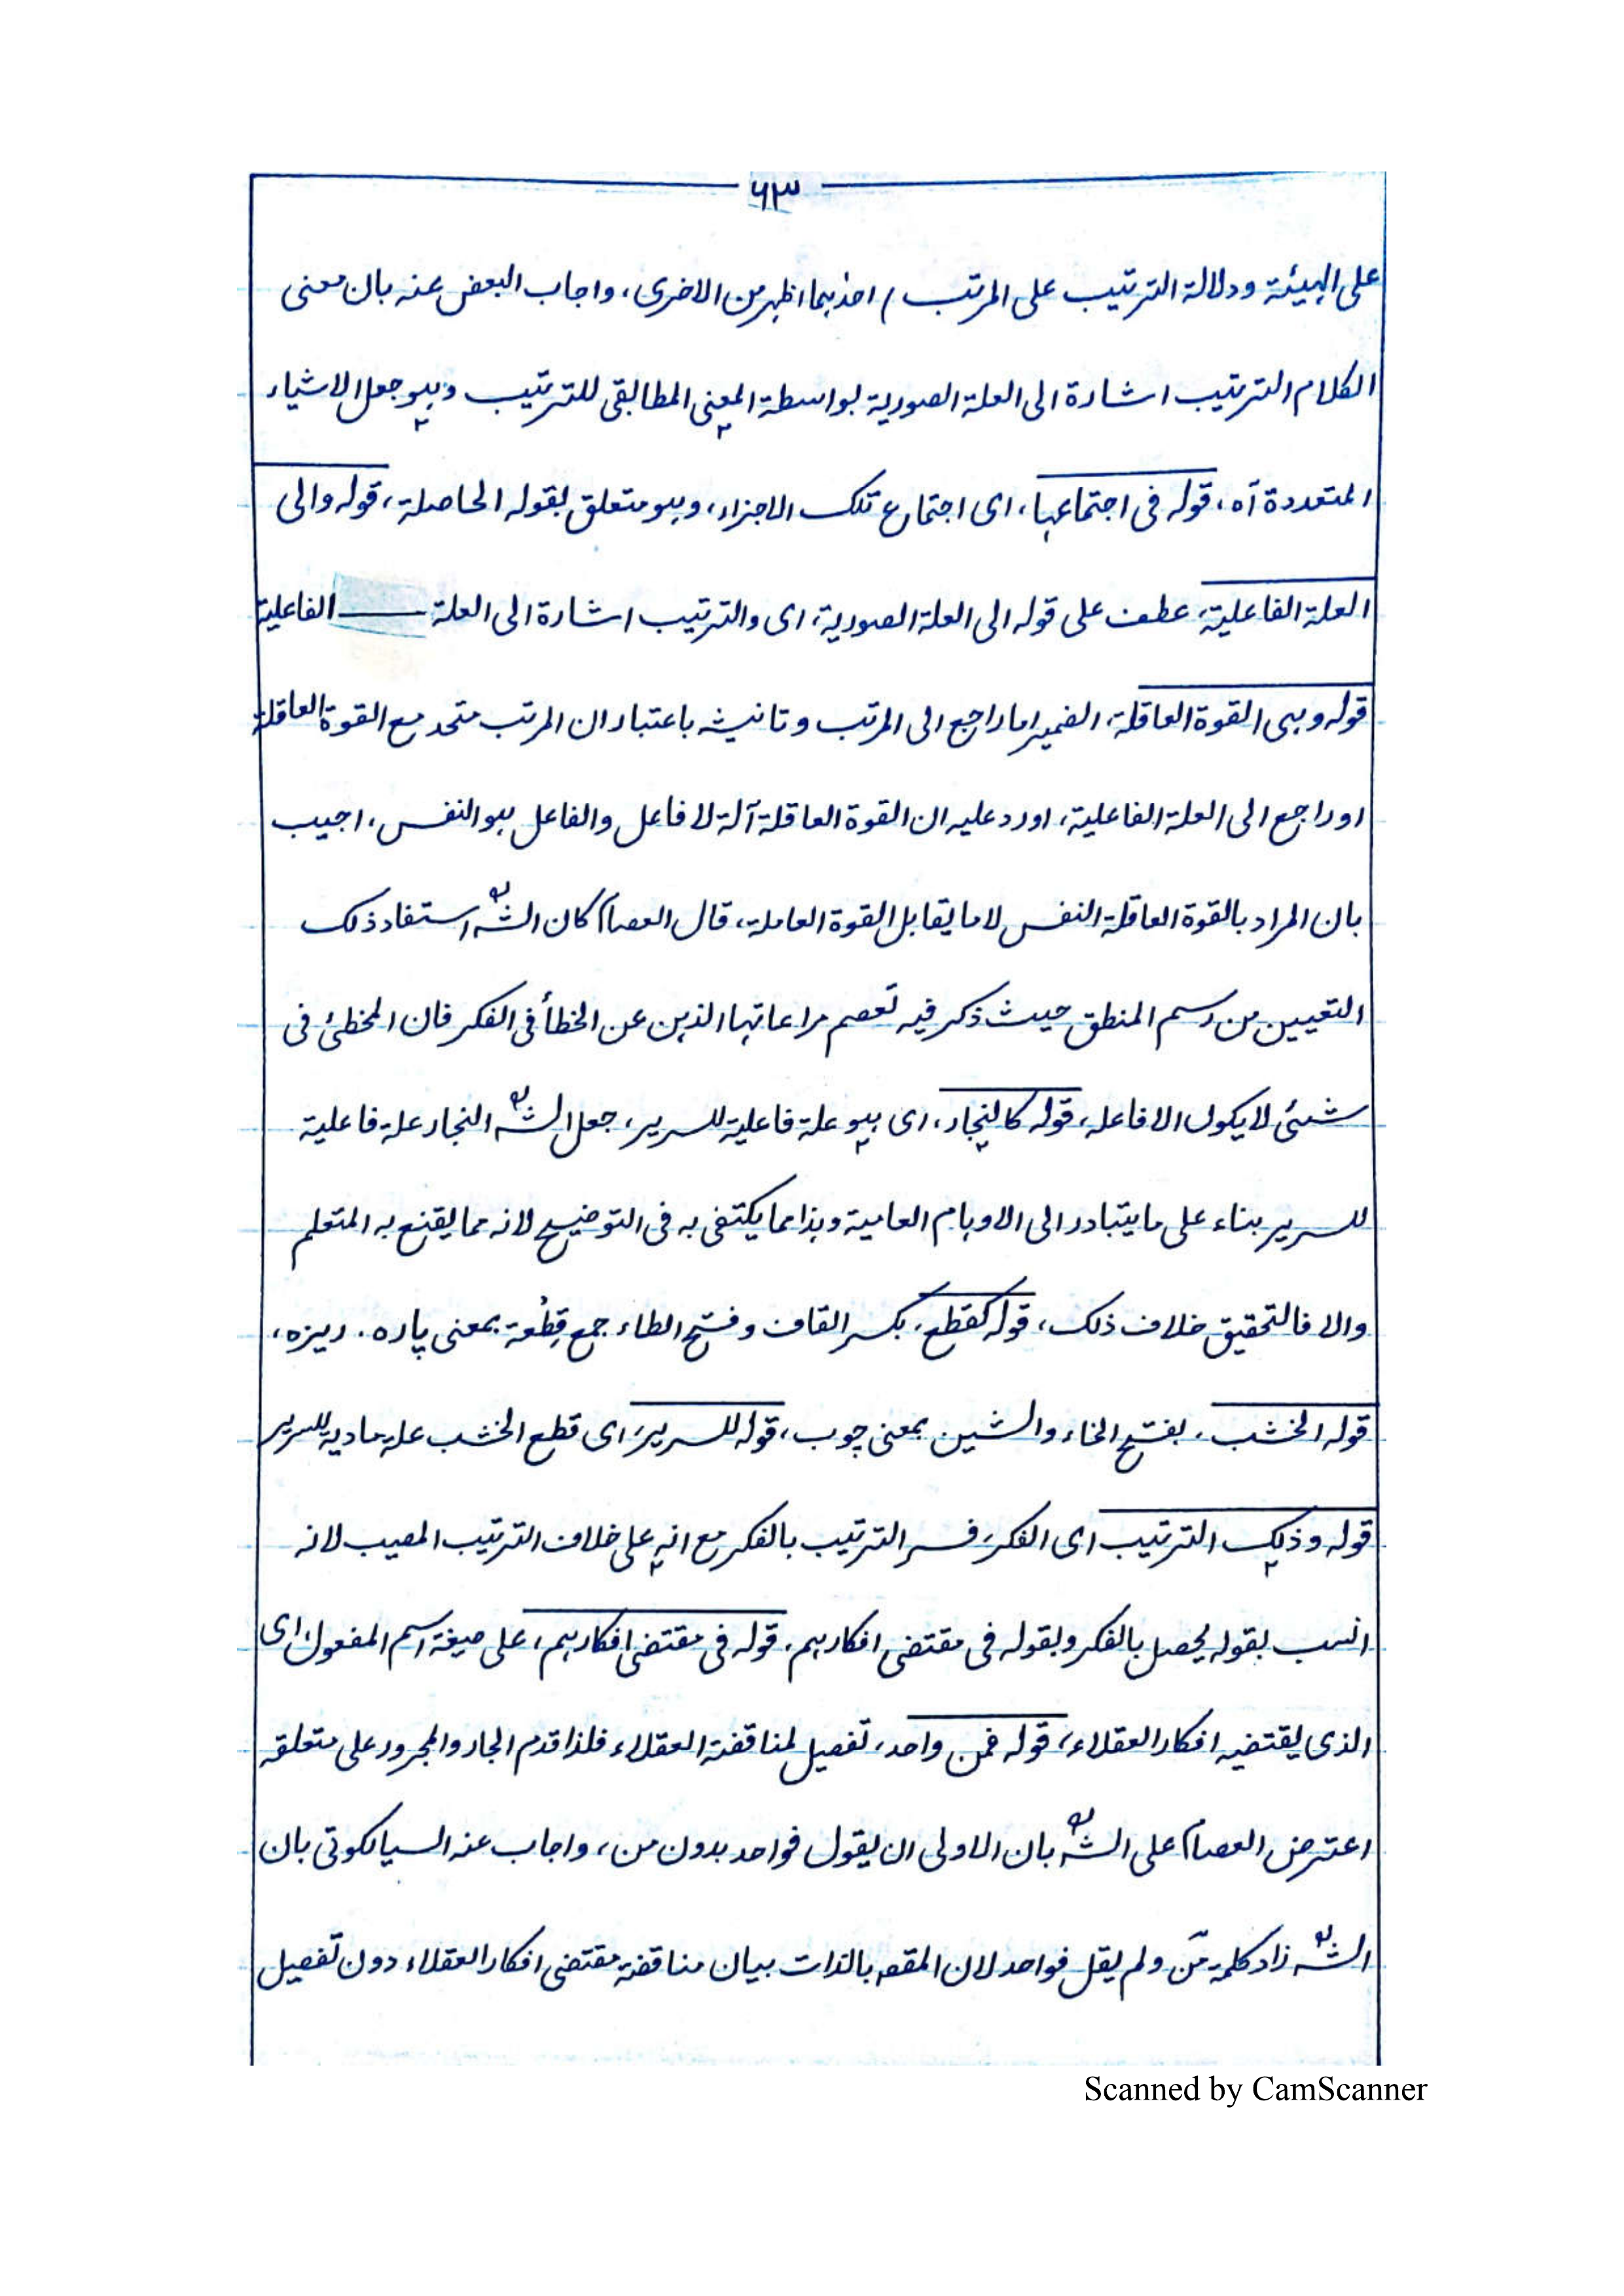 ٦٣
على الهيئة ودلالة الترتيب على المرتب / احدٰهما اظهر من الاخرى، واجاب البعض عنه بان معنى
الكلام الترتيب اشارة الى العلة الصورية بواسطة المعنى المطابقى للترتيب وهو جعل الاشياء
المتعددة آه، قوله فى اجتماعها، اى اجتماع تلك الاجزاء، وهو متعلق بقوله الحاصلة، قوله والى
العلة الفاعلية، عطف على قوله الى العلة الصورية، اى والترتيب اشارة الى العلة الفاعلية
قوله وهى القوة العاقلة، الضمير اما راجع الى المرتب وتانيثه باعتبار ان المرتب متحد مع القوة العاقلة
او راجع الى العلة الفاعلية، اورد عليه ان القوة العاقلة آلة لا فاعل والفاعل هو النفس، اجيب
بان المراد بالقوة العاقلة النفس لا ما يقابل القوة العاملة، قال العصام كان الشہ استفاد ذلك
التعيين من رسم المنطق حيث ذكر فيه تعصم مراعاتها الذهن عن الخطأ فى الفكر فان المخطئ فى
شئى لا يكون الا فاعله، قوله كالنجار، اى هو علة فاعلية للسرير، جعل الشہ النجار علة فاعلية
للسرير بناء على ما يتبادر الى الاوهام العامية وهذا مما يكتفى به فى التوضيح لانه مما يقنع به المتعلم
والا فالتحقيق خلاف ذلك، قوله كقطع، بكسر القاف وفتح الطاء جمع قِطْعة بمعنى پاره. ريزه،
قوله الخشب، بفتح الخاء والشين بمعنى چوب، قوله للسرير، اى قطع الخشب علة مادية للسرير
قوله وذلك الترتيب اى الفكر، فسر الترتيب بالفكر مع انه على خلاف الترتيب المصيب لانه
انسب بقوله يحصل بالفكر وبقوله فى مقتضى افكارهم، قوله فى مقتضى افكارهم، على صيغة اسم المفعول، اى
الذى يقتضيه افكار العقلاء، قوله فمن واحد، تفصيل لمناقضة العقلاء فلذا قدم الجار والمجرور على متعلقه
اعترض العصام على الشہ بان الاولى ان يقول فواحد بدون من، واجاب عنه السيالكوتى بان
الشہ زاد كلمة من ولم يقل فواحد لان المقصہ بالذات بيان مناقضة مقتضى افكار العقلاء دون تفصيل
Scanned by CamScanner